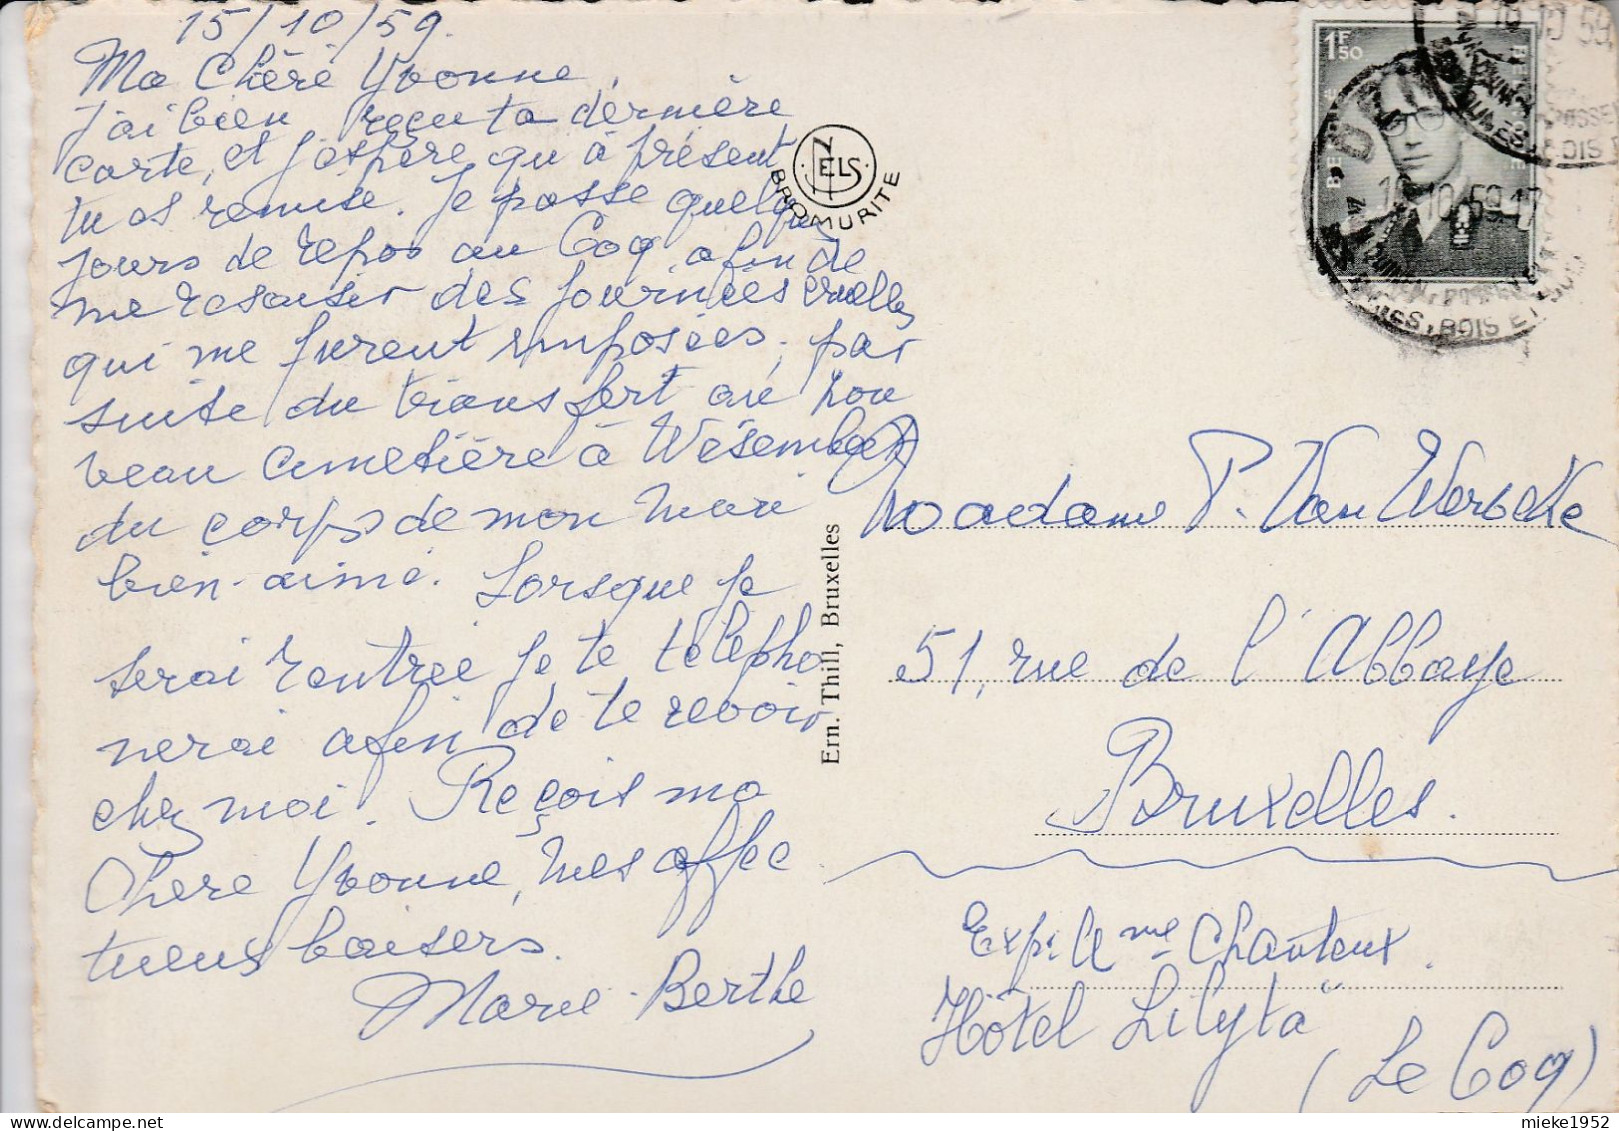 15/10/59.
Ma Chère Yvonne,
J'ai bien reçu ta dernière
carte, et j'espère qu'à présent
tu as remise. Je passe quelques
jours de repos au Coq afin de
me ressaisir des journées cruelles
qui me furent imposées, par
suite du transfert au nou
veau cimetière à Wésembeek
du corps de mon mari
bien-aimé. Lorsque je
serai rentrée je te télépho
nerai afin de te revoir
chez moi. Reçois ma
Chère Yvonne, mes affec
tueux baisers.
Marie-Berthe
NELS
BROMURITE
Ern. Thill, Bruxelles
1F50
10 59
10 59 17
BOIS ET
Madame P. Van Werveke
51, rue de l'Abbaye
Bruxelles.
Exp. Mme Chanteux.
Hôtel Lilyta"
(Le Coq)
mieke1952